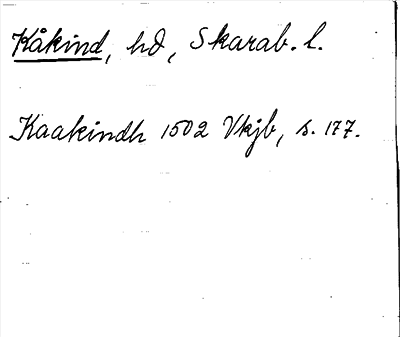 Kåkind, hd, Skarab. l.
Kaakindh 1502 Vkjb, s. 177.